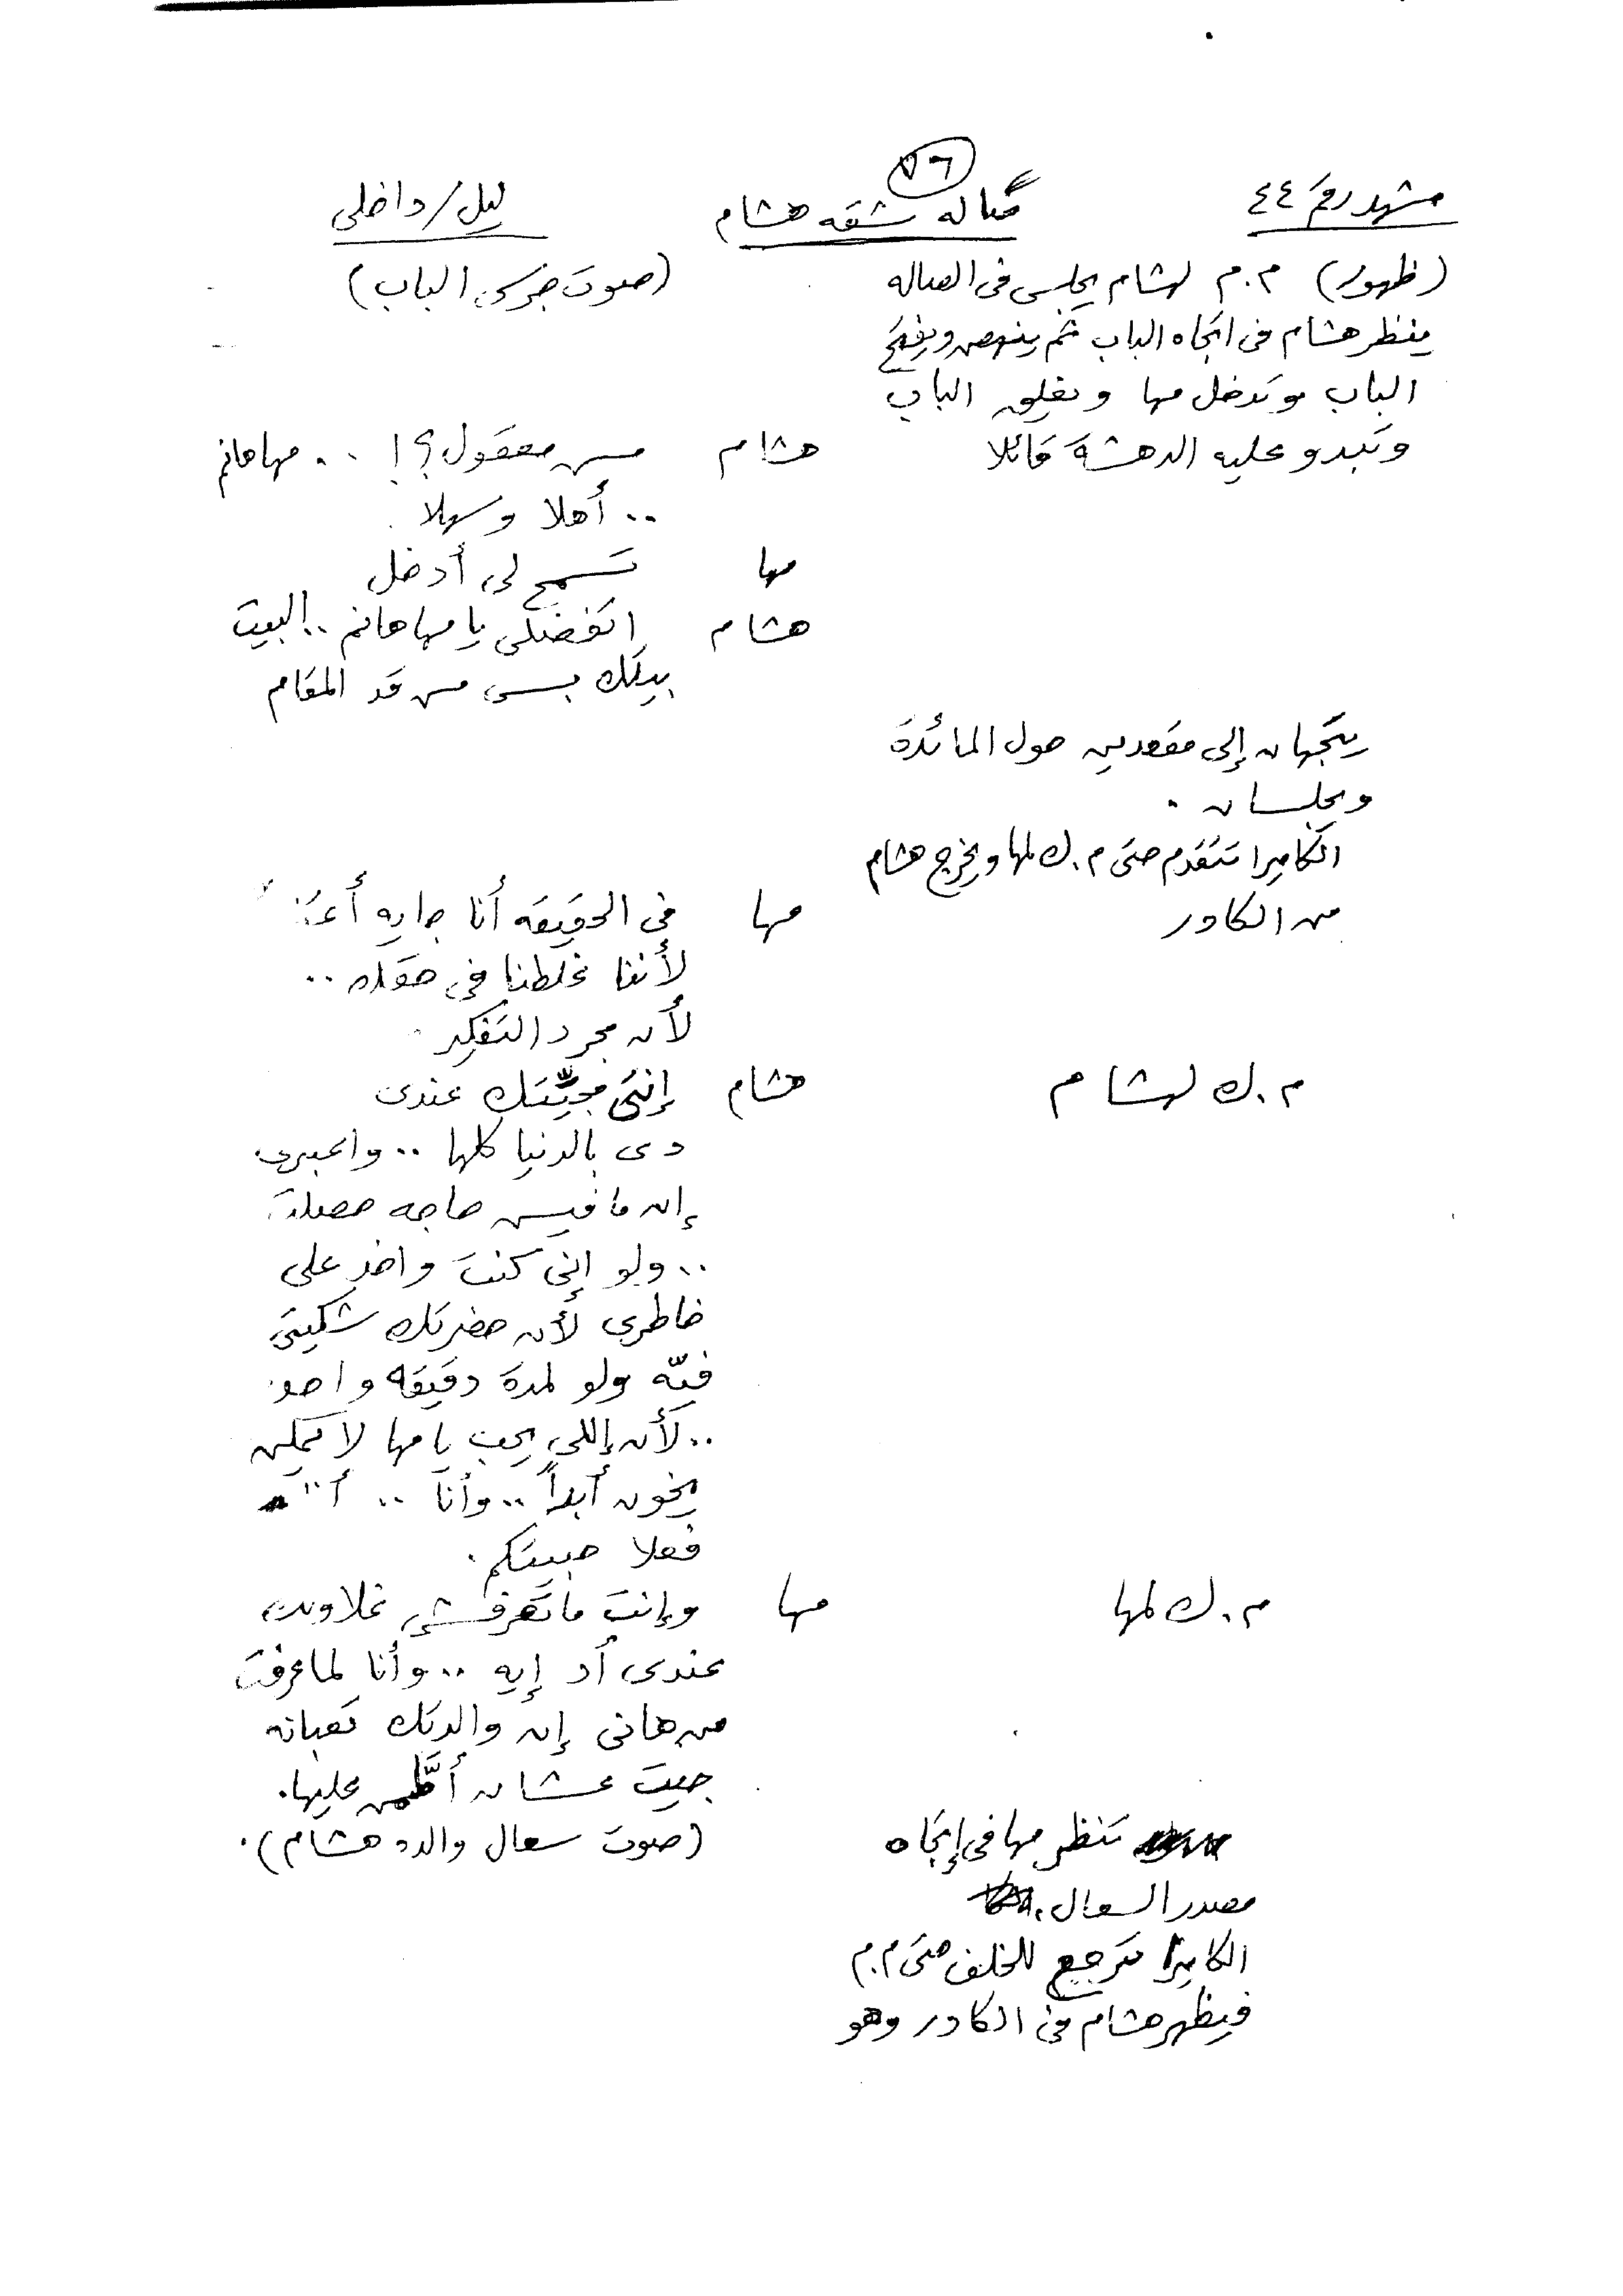 ٧٦
مشهد رقم ٤٤ صاله شقه هشام ليل/داخلى
(ظهور) م.م لهشام يجلس فى الصاله (صوت جرس الباب)
ينظر هشام فى اتجاه الباب ثم ينهض ويفتح
الباب وتدخل مها ويغلق الباب
وتبدو عليه الدهشة قائلا هشام مش معقول؟! .. مها هانم
.. أهلا وسهلا
مها تسمح لى أدخل
هشام اتفضلى يا مها هانم .. البيت
بيتك بس مش قد المقام
يتجهان إلى مقعدين حول المائدة
ويجلسان .
الكاميرا تتقدم حتى م.ك لمها ويخرج هشام
من الكادر مها فى الحقيقه أنا جايه
لأننا غلطنا فى حقك ..
لأن مجرد التفكير
م.ك لهشام هشام إنتى مجيّتك عندى
دى بالدنيا كلها .. واعتبرى
إن مافيش حاجه حصلت
.. ولو إنى كنت واخد على
خاطرى لأن حضرتك شكيتى
فيّه ولو لمدة دقيقه واحده
.. لأن إللى يحب يا مها لا يمكن
يخون أبداً .. وأنا .. أ..
فعلا حبيتكم .
م.ك لمها مها وإنت ماتعرفش غلاوتك
عندى أد إيه .. وأنا لما عرفت
من هانى إن والدتك تعبانه
جيت عشان أطّمن عليها .
تنظر مها فى إتجاه (صوت سعال والدة هشام) .
مصدر السعال .
الكاميرا ترجع للخلف حتى م.م
فيظهر هشام فى الكادر وهو